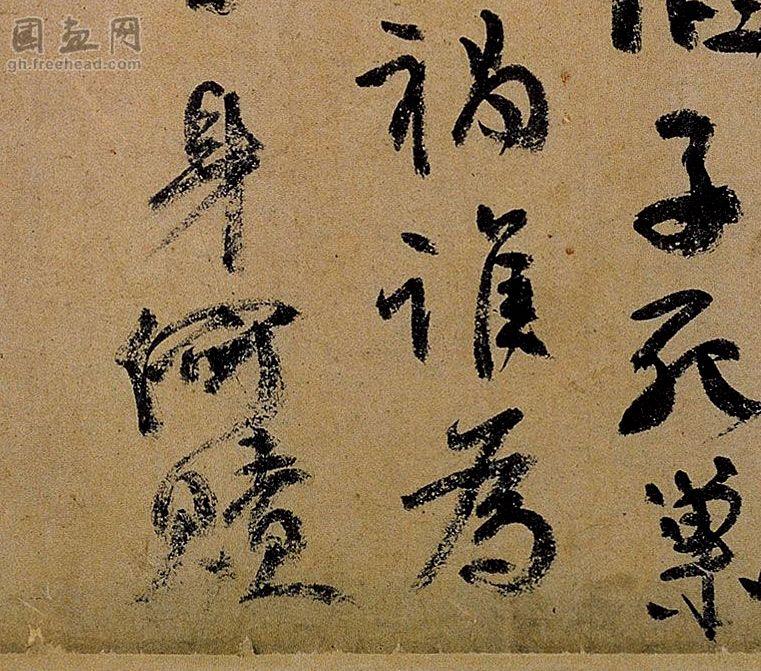 国画网
gh.freehead.com
陷子死巢
禍誰為
身何贖